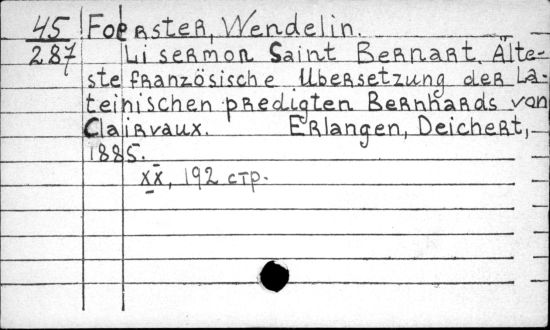 45 Foerster, Wendelin.
287 Li sermon Saint Bernart. Älte-
ste französische Übersetzung der La-
teinischen predigten Bernhards von
Clairvaux. Erlangen, Deichert,
1885.
XX, 192 стр.